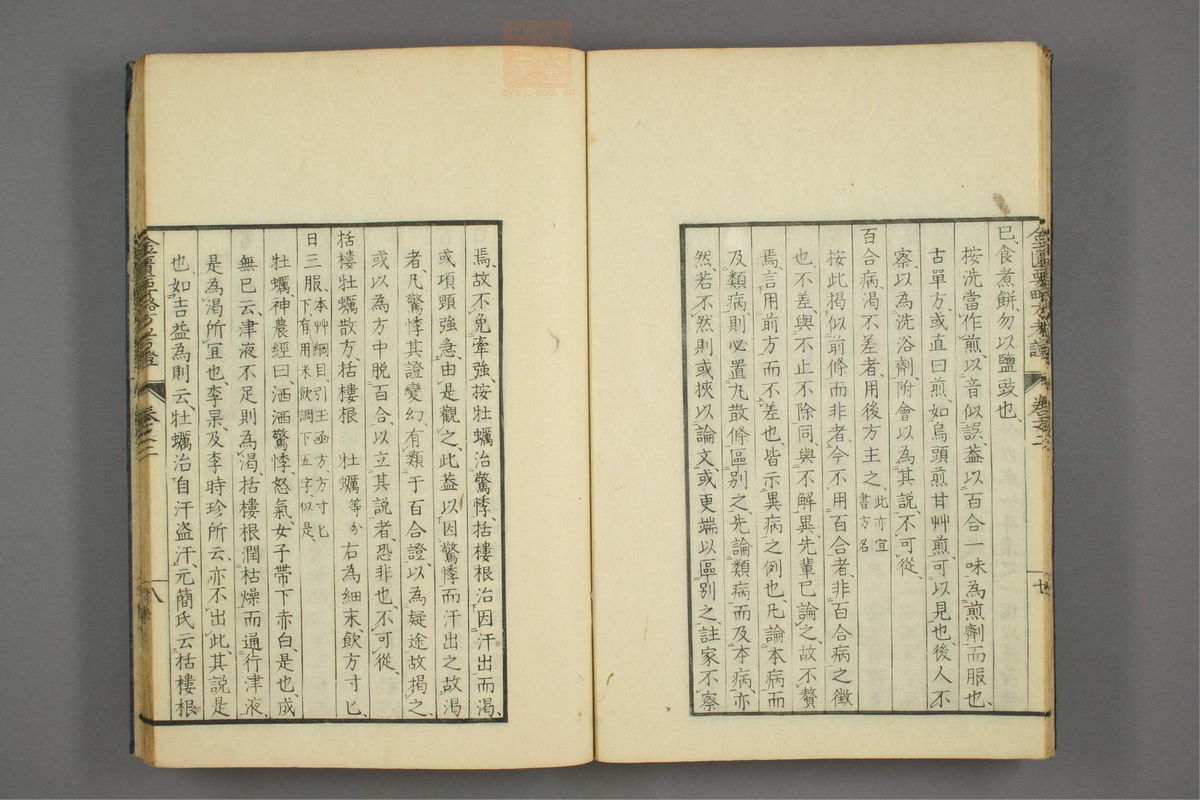 已、食煮餅、勿以鹽豉也、
按洗當作煎、以音似誤、葢以百合一味為煎劑而服也、
古單方、或直曰煎、如烏頭煎甘艸煎、可以見也、後人不
察、以為洗浴劑、附會以為其説、不可從、
百合病、渴不差者、用後方主之、此亦宜書方名
按此揭似前條而非者、今不用百合者、非百合病之徵
也、不差、與不止不除同、與不解異、先輩已論之、故不贅
焉、言用前方而不差也、皆示異病之例也、凡論本病而
及類病、則必置凡散條、區別之、先論類病而及本病、亦
然、若不然、則或挾以論文、或更端以區別之、註家不察
焉、故不免牽強、按牡蠣治驚悸、括樓根治因汗出而渴、
或項頸強急、由是觀之、此葢以因驚悸而汗出之故渴
者、凡驚悸其證變幻、有類于百合證、以為疑途、故揭之、
或以為方中脱百合、以立其説者、恐非也、不可從、
括樓牡蠣散方、括樓根 牡蠣等分 右為細末、飲方寸匕、
日三服、本艸綱目、引王函方、方寸匕下、有用米飲調下五字、似是、
牡蠣神農經曰、洒洒驚悸怒氣、女子帶下赤白、是也、成
無已云、津液不足則為渴、括樓根潤枯燥而通行津液、
是為渴所宜也、李杲、及李時珍所云、亦不出此、其説是
也、如吉益為則云、牡蠣治自汗盗汗、元簡氏云括樓根
金匱要略方
卷之二
八